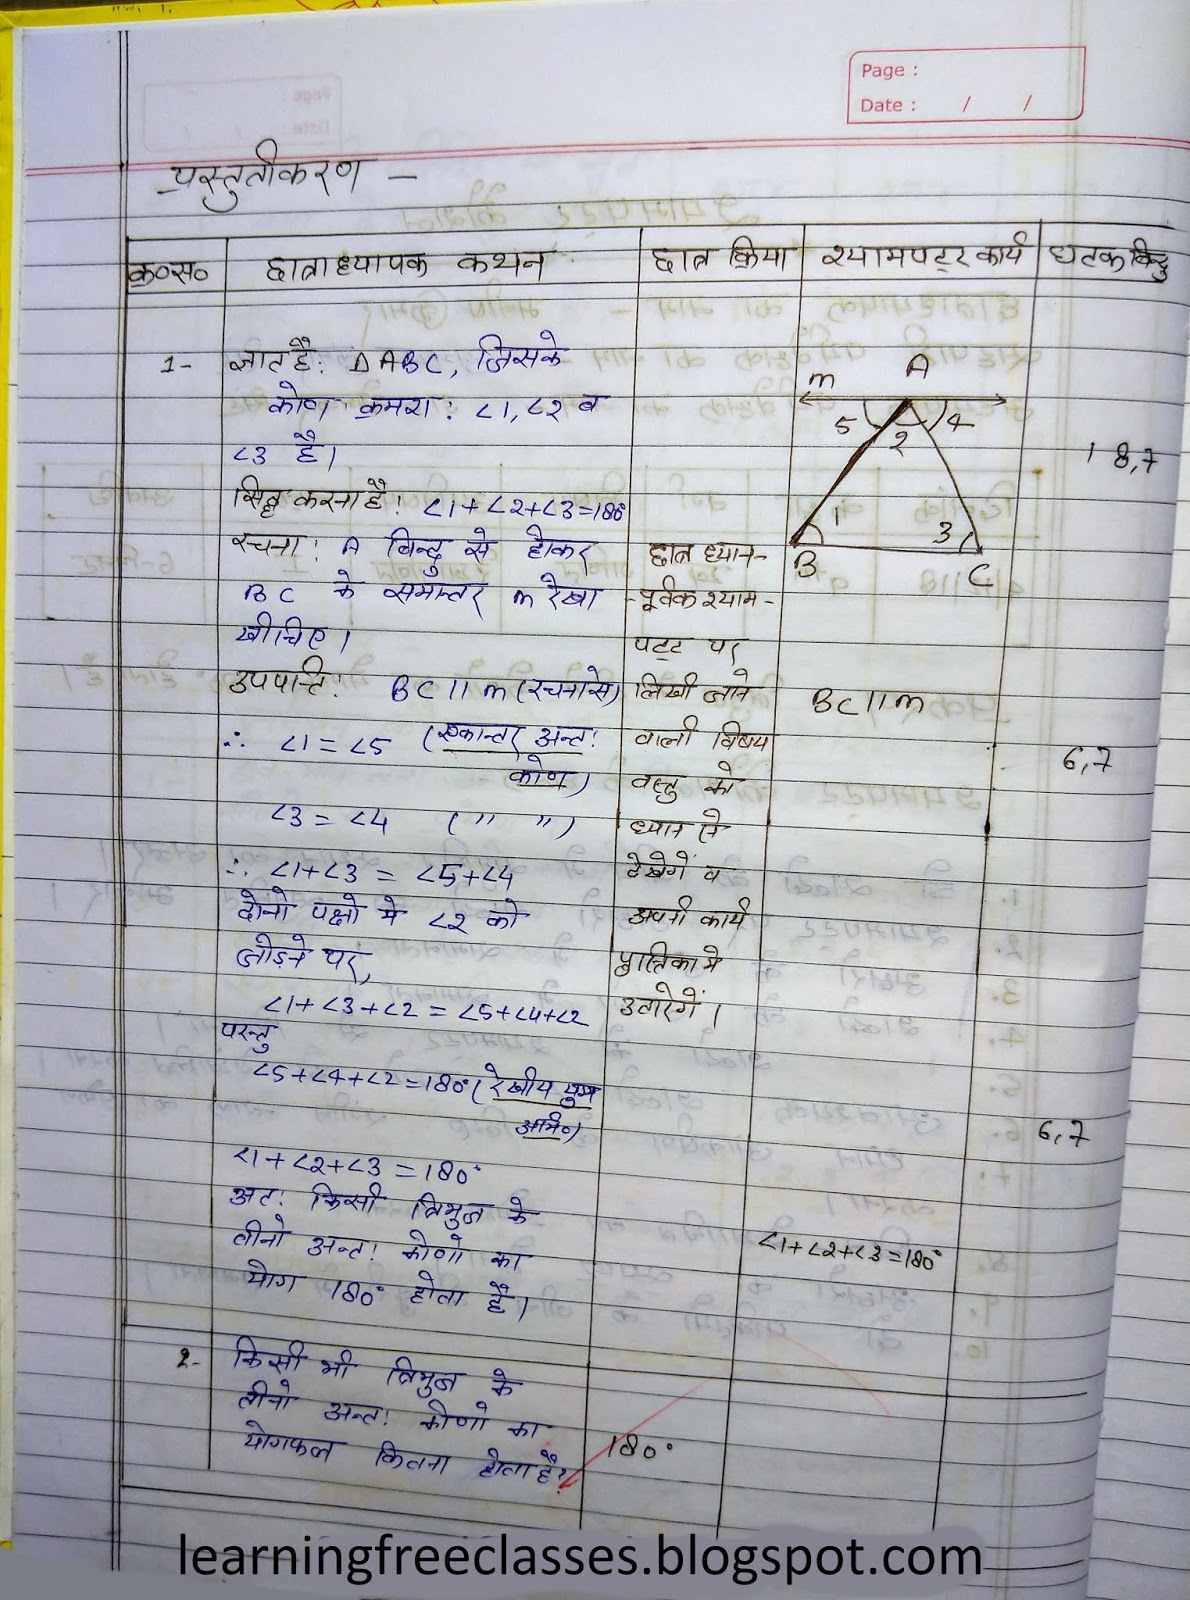 Page :
Date : / /
प्रस्तुतीकरण –
क्र०स० छात्राध्यापक कथन छात्र क्रिया श्यामपट्ट कार्य घटक बिन्दु
1- ज्ञात है: ΔABC, जिसके
कोण क्रमश: ∠1, ∠2 व
∠3 है।
सिद्ध करना है: ∠1+∠2+∠3=180°
रचना: A बिन्दु से होकर
BC के समान्तर m रेखा
खींचिए।
उपपत्ति: BC||m (रचना से)
∴ ∠1=∠5 (एकान्तर अन्त:
कोण)
∠3=∠4 (" ")
∴ ∠1+∠3 = ∠5+∠4
दोनो पक्षो मे ∠2 को
जोड़ने पर,
∠1+∠3+∠2=∠5+∠4+∠2
परन्तु
∠5+∠4+∠2=180° (रेखीय युग्म
अभि०)
∠1+∠2+∠3=180°
अत: किसी त्रिभुज के
तीनो अन्त: कोणो का
योग 180° होता है।
छात्र ध्यान-
-पूर्वक श्याम-
पट्ट पर
लिखी जाने
वाली विषय
वस्तु को
ध्यान से
देखेगें व
अपनी कार्य
पुस्तिका मे
उतारेगें।
m A
5 2 4
1 3
B C
BC||m
∠1+∠2+∠3=180°
1 8,7
6,7
6,7
2- किसी भी त्रिभुज के
तीनो अन्त: कोणो का
योगफल कितना होता है?
180°
learningfreeclasses.blogspot.com